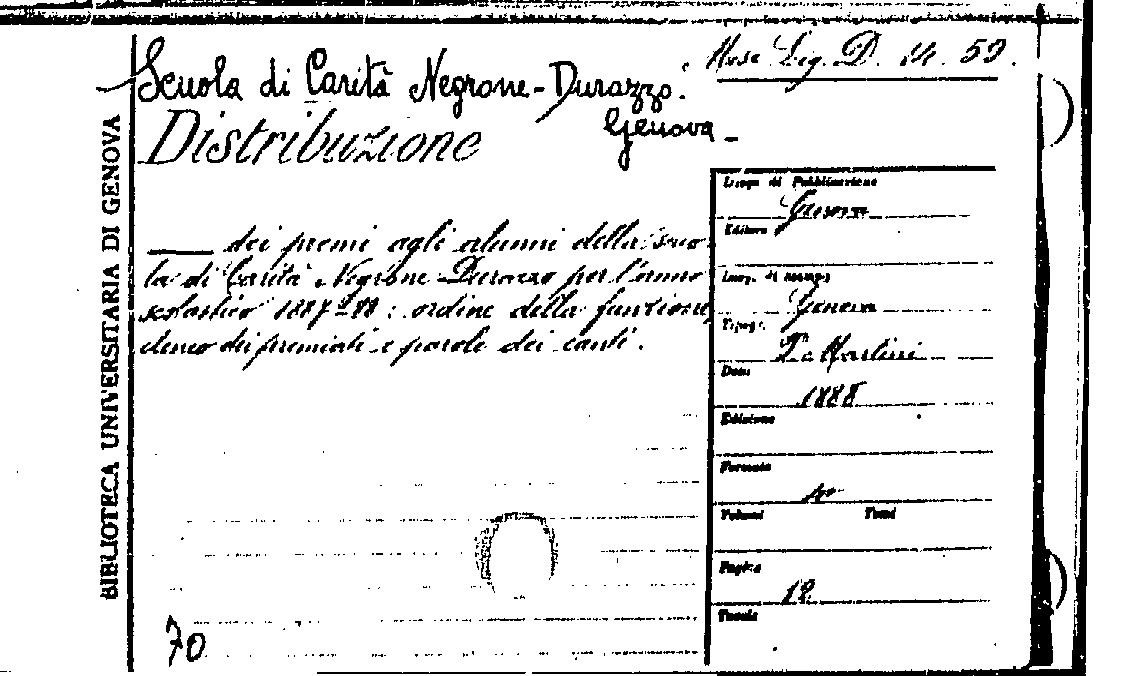 Scuola di Carità Negrone-Durazzo.
Genova -
Distribuzione
Lig. D. 59.
BIBLIOTECA UNIVERSITARIA DI GENOVA
dei premi agli alunni della scuo
la di Carità Negrone-Durazzo per l'anno
scolastico 1887-88: ordine della funzione,
elenco dei premiati e parole dei canti.
Luogo di Pubblicazione
Genova
Editore
Luog. di stampa
Genova
Tipogr.
De Martini
Data
1888
Edizione
Formato
Volumi Tomi
Pagine
12
Tavole
70